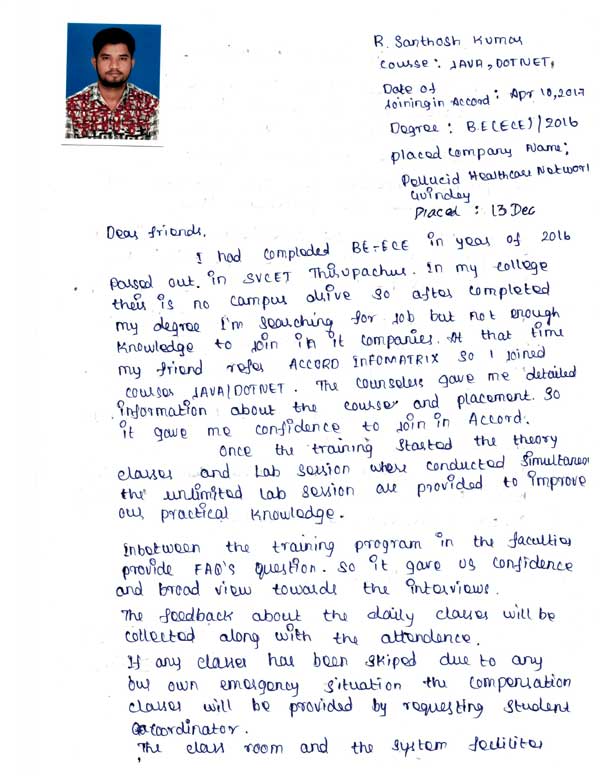 R. Santhosh Kumar
Course : JAVA, DOTNET,
Date of
Joining in Accord : Apr 10, 2017
Degree : B.E (ECE) / 2016
placed company Name :
Pellucid Healthcare Network
Guindey
Placed : 13 Dec
Dear friends,
I had compleded BE-ECE in year of 2016
Passed out. in SVCET Thirupachur. In my college
their is no campus drive so after completed
my degree I'm searching for Job but not enough
Knowledge to Join in it companies. At that time
my friend refer ACCORD INFOMATRIX so I Joined
courses JAVA/DOTNET. The counselers gave me detailed
information about the course and placement. So
it gave me confidence to Join in Accord.
Once the training started the theory
classes and Lab Session where conducted Simultaneo
the unlimited Lab Session are provided to improve
our practical Knowledge.
inbetween the training program in the faculties
provide FAQ'S question. So it gave us confidence
and broad view towards the interviews.
The feedback about the daily classes will be
collected along with the attendence.
If any classes has been skiped due to any
our own emergency situation the compensation
classes will be provided by requesting student
coordinator.
The class room and the system facilites